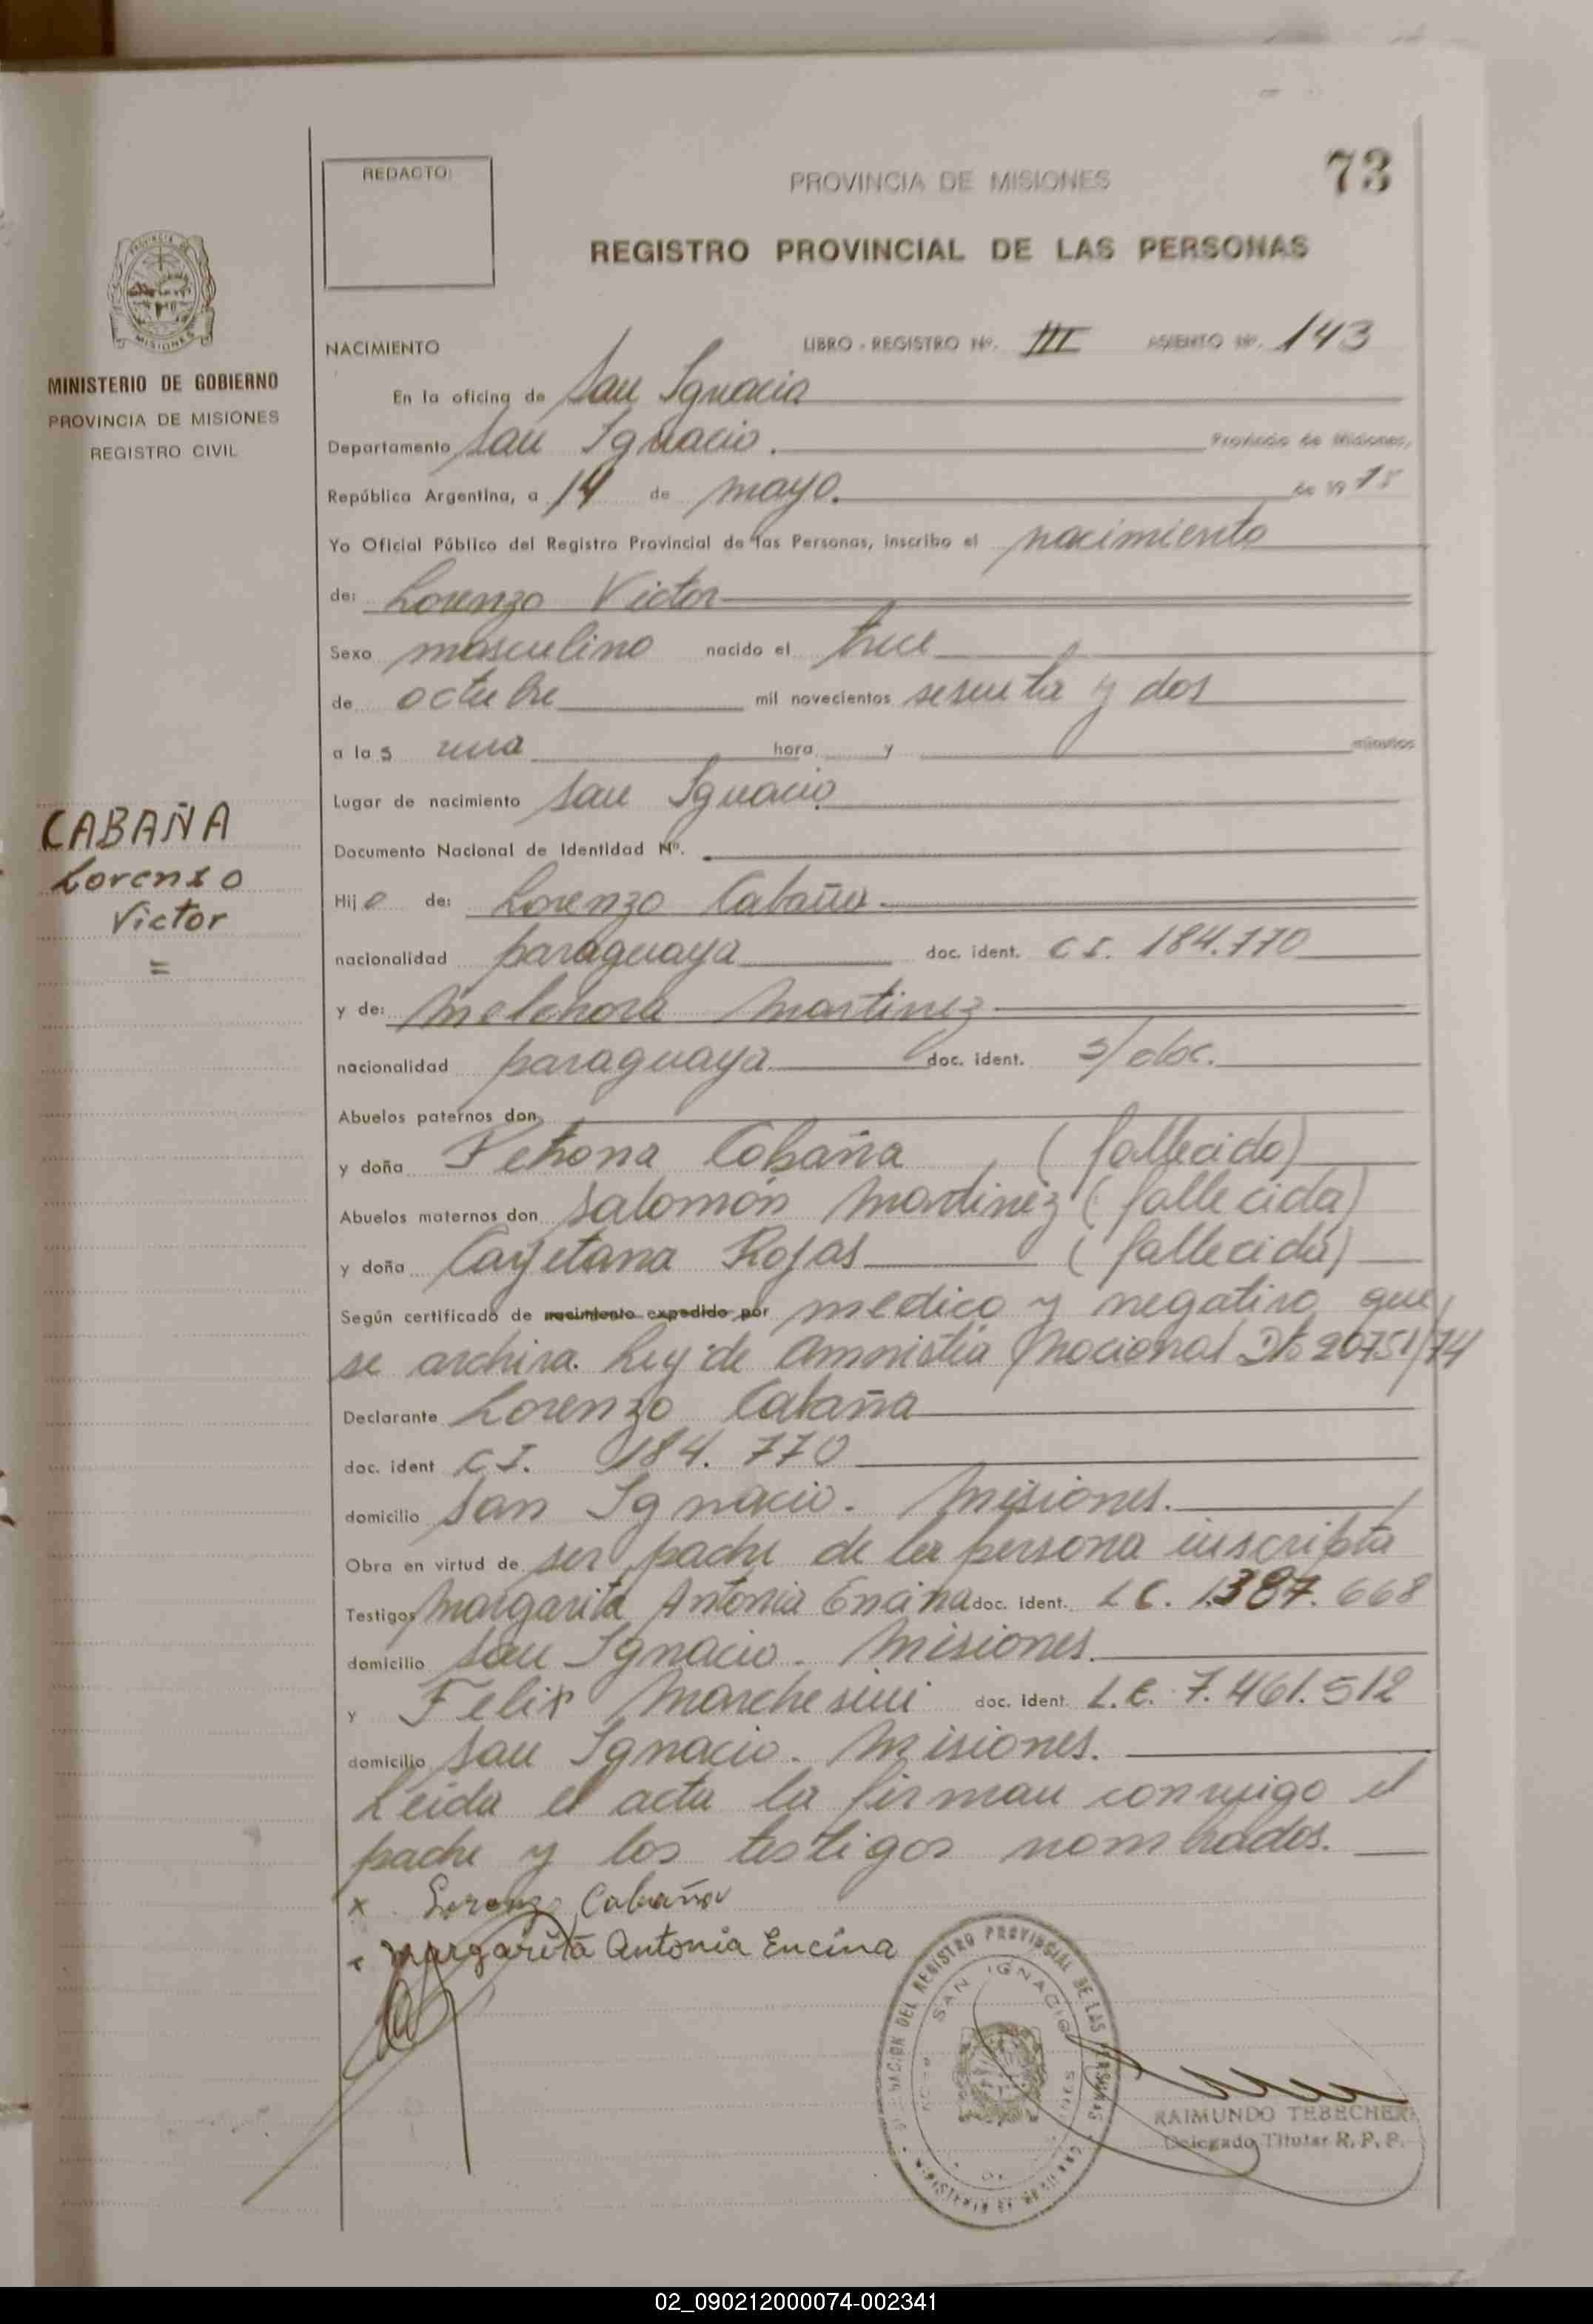 73
REDACTO:
PROVINCIA DE MISIONES
REGISTRO PROVINCIAL DE LAS PERSONAS
PROVINCIA DE
MISIONES
MINISTERIO DE GOBIERNO
PROVINCIA DE MISIONES
REGISTRO CIVIL
CABAÑA
Lorenzo
Victor
=
NACIMIENTO LIBRO - REGISTRO Nº. III ASIENTO Nº. 143
En la oficina de San Ignacio
Departamento San Ignacio. Provincia de Misiones,
República Argentina, a 14 de mayo. de 19 75
Yo Oficial Público del Registro Provincial de las Personas, inscribo el nacimiento
de: Lorenzo Victor
Sexo masculino nacido el trece
de octubre mil novecientos sesenta y dos
a las una hora y minutos
Lugar de nacimiento San Ignacio
Documento Nacional de Identidad Nº.
Hijo de: Lorenzo Cabaña
nacionalidad paraguaya doc. ident. C I. 184.770
y de: Melchora Martinez
nacionalidad paraguaya doc. ident. s/doc.
Abuelos paternos don
y doña Petrona Cabaña (fallecida)
Abuelos maternos don Salomón Martinez (fallecida)
y doña Cayetana Rojas (fallecida)
Según certificado de nacimiento expedido por medico y negativo que
se archiva. Ley de Amnistia Nacional Dto 20751/74
Declarante Lorenzo Cabaña
doc. ident C I. 184.770
domicilio San Ignacio. Misiones.
Obra en virtud de ser padre de la persona inscripta
Testigos Margarita Antonia Encina doc. ident. L C. 1.387.668
domicilio San Ignacio. Misiones.
y Felix Marchesini doc. Ident. L.E. 7.461.512
domicilio San Ignacio. Misiones.
Leida el acta la firman conmigo el
padre y los testigos nombrados.
x Lorenzo Cabaña
x Margarita Antonia Encina
DEL REGISTRO PROVINCIAL DE LAS PERSONAS
SAN IGNACIO
RAIMUNDO TEBECHERI
Delegado Titular R. P. P.
02_090212000074-002341